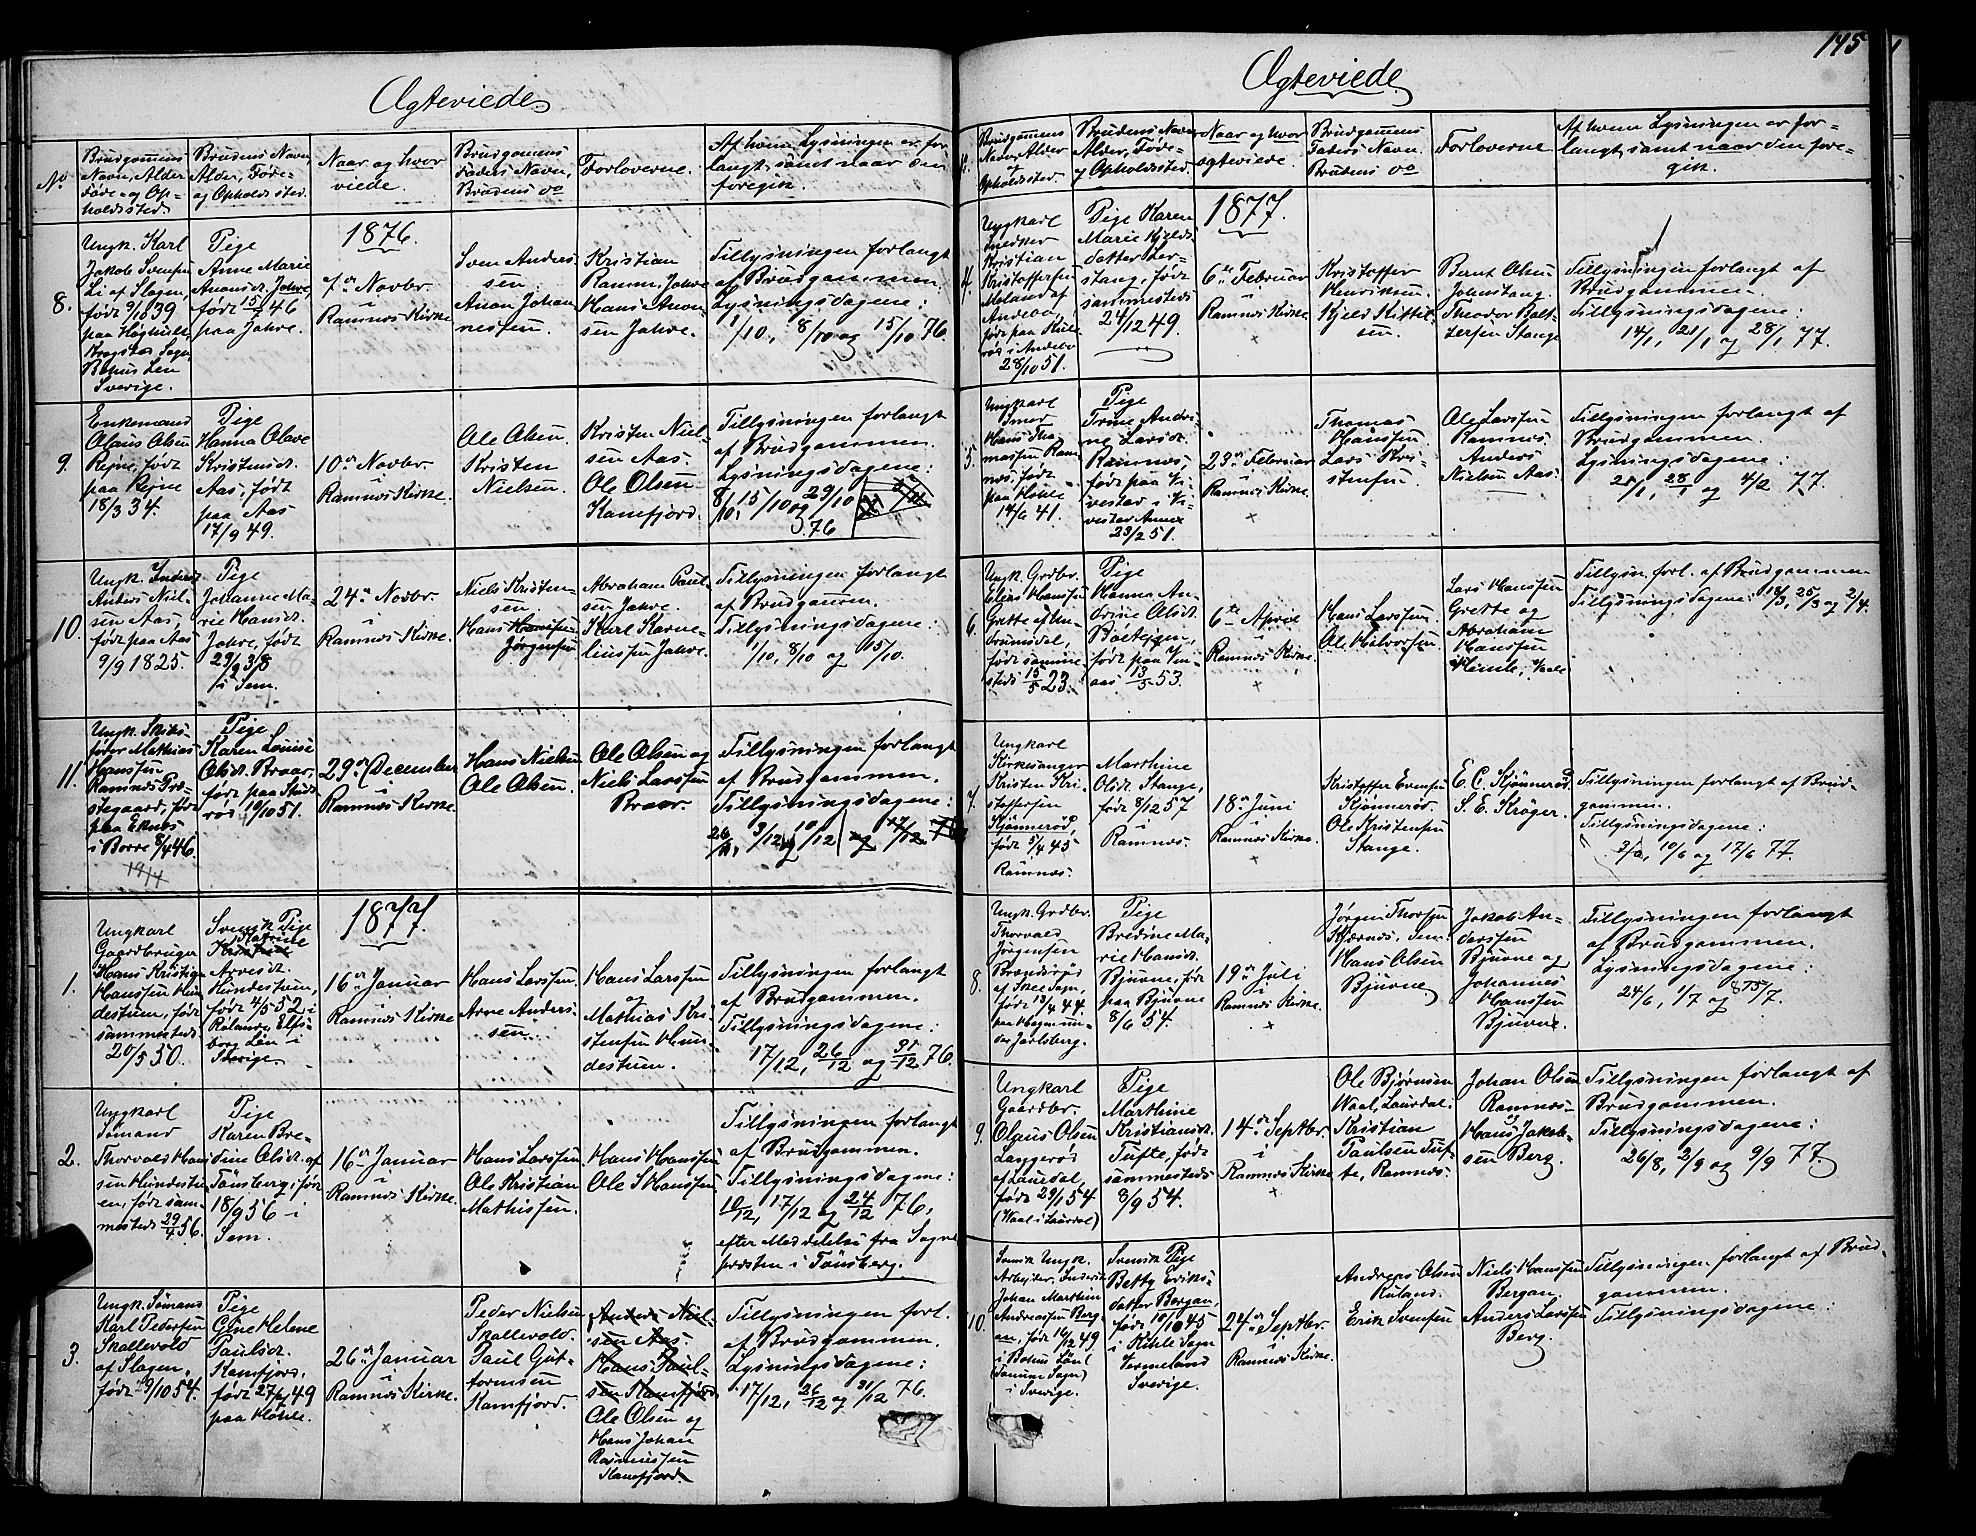 145
Ægteviede
No
Brudgommens
Navn, Alder
Føde- og Op-
holdssted.
Brudens Navn,
Alder, Føde-
og Opholdssted.
Naar og hvor
viede.
Brudgommens
Faders Navn,
Brudens do
Forloverne.
Af hvem Lysningen er for-
langt, samt naar den
foregik.
1876.
8.
Ungk. Karl
Jakob Svensen
Li af Slagen,
født 9/10 39
paa
Sogn
Bohus Len
Sverige.
Pige
Anne Marie
Anonsd. Jahre,
født 15/7 46
paa Jahre.
7de Novbr.
i
Ramnes Kirke
Sven Anders
sen
Anon Johan
nessen.
Kristian
Ramm, Jahre
Hans Anon-
sen Jahre.
Tillysningen forlangt
af Brudgommen.
Lysningsdagene:
1/10, 8/10 og 15/10 76.
9.
Enkemand
Olaus Olsen
Rejne, født
paa Rejne
18/3 34.
Pige
Hanna Olave
Kristensd.
Aas, født
paa Aas
17/9 49.
10de Novbr.
i
Ramnes Kirke.
Ole Olsen.
Kristen
Nielsen.
Kristen Niel-
sen Aas.
Ole Olsen
Kamfjord.
Tillysningen forlangt
af Brudgommen.
Lysningsdagene:
8/10, 15/10 og 29/10
76
10.
Ungk. Inderst
Anders Niel-
sen Aas,
født paa Aas
9/9 1825.
Pige
Johanne Ma-
rie Hansd.
Jahre, født
29/9 38
i Sem.
24de Novbr.
i
Ramnes Kirke.
Niels Kristen-
sen
Hans Hansen
Jørgensen
Abraham Paul-
sen Jahre.
Karl Korne-
liussen Jahre.
Tillysningen forlangt
af Brudgommen.
Tillysningsdagene:
1/10, 8/10 og 15/10.
11.
Ungk. Skibs-
fører Mathias
Hansen
Ramnes Præ-
stegaard, født
paa
i Borre 8/4 46.
19/4
Pige
Karen Louise
Olsd. Braar,
født paa
rød 19/10 51.
29de December
i
Ramnes Kirke.
Hans Nielsen
Ole Olsen.
Ole Olsen og
Niels Larsen
Braar.
Tillysningen forlangt
af Brudgommen.
Tillysningsdagene:
26/11, 3/12 og 10/12 og 17/12 76
1877.
1.
Ungkarl
Gaardbruger
Hans Kristian
Hansen Hun
destuen, født
sammesteds
20/5 30.
Svensk Pige
Katrine
Arvesd.
Hundestuen,
født 4/5 52 i
Rølanda, Elfs-
borg Län i
Sverige.
16de Januar
i
Ramnes Kirke
Hans Larsen
Arve Anders-
sen.
Hans Larsen
og
Mathias Kri-
stensen Hun-
destuen.
Tillysningen forlangt
af Brudgommen.
Tillysningsdagene:
17/12, 26/12 og 31/12 76.
2.
Ungkarl
Sømand
Thorvald Hans
sen Hundestu
en, født sam-
mesteds 29/4 56.
Pige
Karen Bre-
dine Olsd. af
Tønsberg, født
18/9 56 i
Sem.
16de Januar
i
Ramnes Kirke.
Hans Larsen
Ole Kristian
Mathisen.
Hans Hansen
Ole S Hansen
Tillysningen forlangt
af Brudgommen.
Tillysningsdagene:
10/12, 17/12 og 24/12 76,
efter Meddelelse fra Sogne
præsten i Tønsberg.
3.
Ungk. Sømand
Karl Pedersen
Skallevold
af Slagen,
født 9/10 54.
Pige
Gine Helene
Paulsd.
Kamfjord,
født 27/4 49
paa Høhle.
26de Januar
i
Ramnes Kirke.
Peder Nielsen
Skallevold.
Paul Gut-
tormsen
Kamfjord.
Anders Niel-
sen Aas
Hans Paul-
sen Kamfjord
Ole Olsen og
Hans Johan
Rasmussen
Kamfjord.
Tillysningen forl.
af Brudgommen.
Lysningsdagene:
17/12, 26/12 og 31/12 76.
Ægteviede
Brudgommens
Navn, Alder
og
Opholdssted.
Brudens Navn
Alder, Føde-
og Opholdssted.
Naar og hvor
ægteviede.
Brudgommens
Faders Navn.
Brudens do
Forloverne
Af hvem Lysningen er for-
langt, samt naar den fore-
gik.
1877.
4.
Ungkarl
Snedker
Kristian
Kristoffersen
Moland af
Andebo,
født paa
rød i Andebo
28/10 51.
Pige Karen
Marie Kjelds-
datter
stang, født
sammesteds
24/12 49.
6te Februar
i
Ramnes Kirke
Kristoffer
Henriksen.
Kjeld Kittil-
sen.
Bernt Olsen
Theodor Balt-
zersen Stange
Tillysningen forlangt af
Brudgommen.
Tillysningsdagene:
14/1, 21/1 og 28/1 77.
5.
Ungkarl
Smed
Hans Tho-
massen Ram
nes, født
paa Høhle
14/6 41.
Pige
Trine Andri-
ne Larsd.
Ramnes,
født paa Vi-
vestad i Vi-
vestad Annex
23/2 51.
23de Februar
i
Ramnes Kirke
Thomas
Hansen
Lars Kri-
stensen.
Ole Larsen
Ramnes.
Anders
Nielsen Aas.
Tillysningen forlangt af
Brudgommen.
Lysningsdagene:
21/1, 28/1 og 4/2 77.
6.
Ungk. Grdbr.
Elias Hansen
Grette af Un-
drumsdal,
født samme
steds 15/5 23.
Pige
Hanna An-
drine Olsd.
Bolt
født paa
aas 13/5 53.
6te April
i
Ramnes Kirke.
Hans Larsen.
Ole Halvorsen
Lars Hansen
Grette og
Abraham
Hansen
Himle, i Vaale
Tillysn. forl. af Brudgommen
Tillysningsdagene: 18/3, 25/3 og 2/4.
7.
Ungkarl
Kirkesanger
Kristen Kri-
stoffersen
Kjønnerød,
født 5/4 45
Ramnes.
Marthine
Olsd. Stange,
født 8/12 57
i
Ramnes.
18de Juni
i
Ramnes Kirke.
Kristoffer Evensen
Kjønnerød.
Ole Kristensen
Stange.
E. C. Kjønnerød
S. E. Krøger.
Tillysningen forlangt af Brud-
gommen.
Tillysningsdagene:
3/6, 10/6 og 17/6 77.
8.
Ungk. Grdbr.
Thorvald
Jørgensen
Brændsrød
af Skee Sogn,
født 13/4 44
paa Hogne
Jarlsberg.
Pige
Bredine Ma-
rie Hansd.
Bjuvne, født
paa Bjuvne
8/6 54.
19de Juli
i
Ramnes Kirke.
Jørgen Thorsen
Sem.
Hans Olsen
Bjuvne
Jakob An-
dersen
Bjuvne og
Johannes
Hansen
Bjuvne.
Tillysningen forlangt
af Brudgommen.
Lysningsdagene:
24/6, 1/7 og 8/7.
9.
Ungkarl
Gaardbr.
Olaus Olsen
Langerød
af Laurdal,
født 29/1 54
(Waal i Laurdal)
Pige
Marthine
Kristiansd.
Tufte, født
sammesteds
8/9 54.
14de Septbr.
i
Ramnes Kirke
Ole Bjørnsen
Waal, Laurdal.
Kristian
Paulsen Tuf-
te, Ramnes.
Johan Olsen
Ramnes
og
Hans Jakob-
sen Berg.
Tillysningen forlangt af
Brudgommen.
Tillysningsdagene:
26/8, 2/9 og 9/9 77
10.
Svensk Ungk.
Arbejder, Inderst
Johan Marthin
Andreassen Berg
an, født 16/12 49
i Bohus Län
(Tanum Sogn)
i Sverige.
Svensk Pige
Betty Eriks-
datter Bergan,
født 10/10 45
i Kihle Sogn
Vermeland
Sverige.
24de Septbr.
i
Ramnes Kirke.
Andreas Olsen
Ruland.
Erik Svensen
Niels Hansen
Bergan.
Anders Larsen
Berg.
Tillysningen forlangt af Brud-
gommen.
Tillysningsdagene: